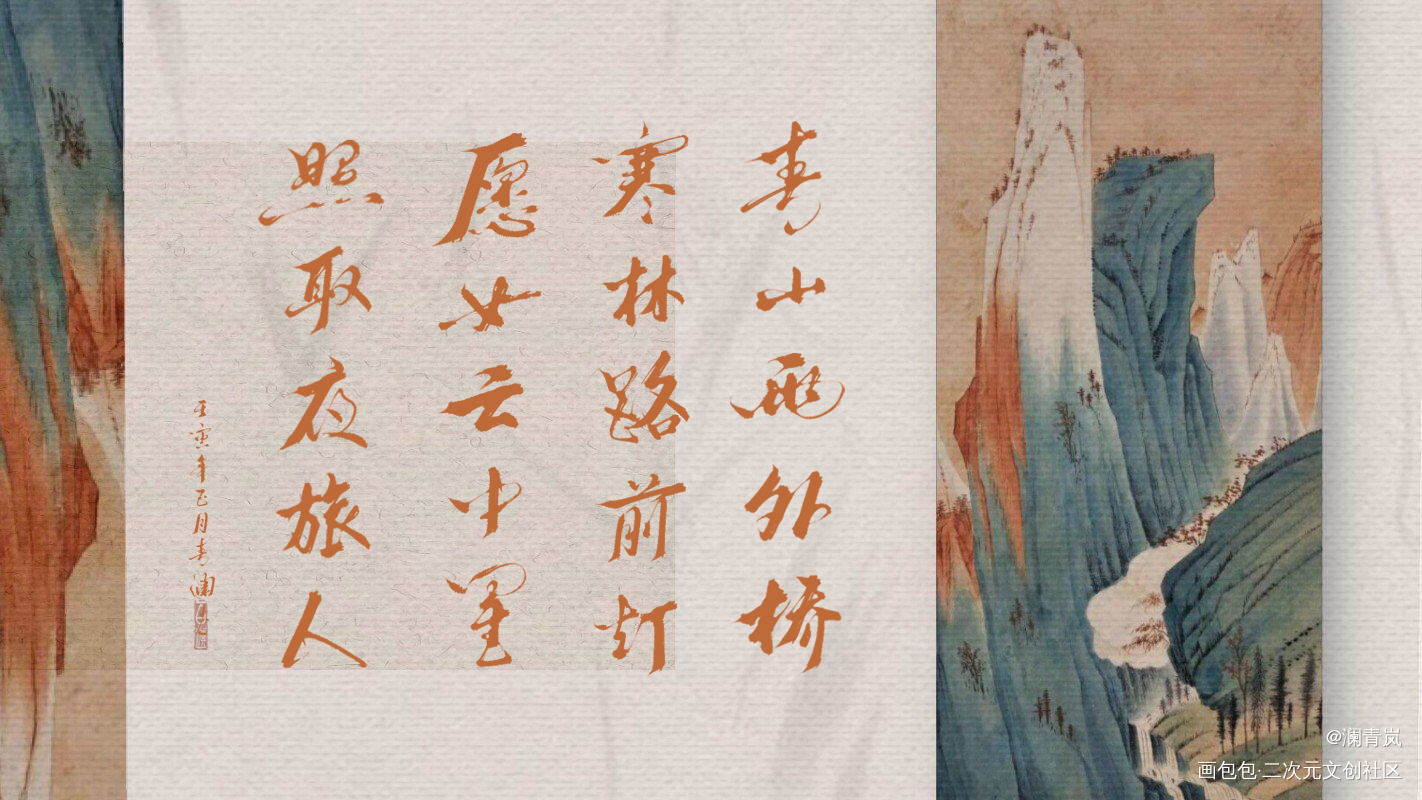 青山飛外桥
寒林路前灯
愿女云中里
照取夜旅人
壬寅年正月青澜
@澜青岚
画包包·二次元文创社区